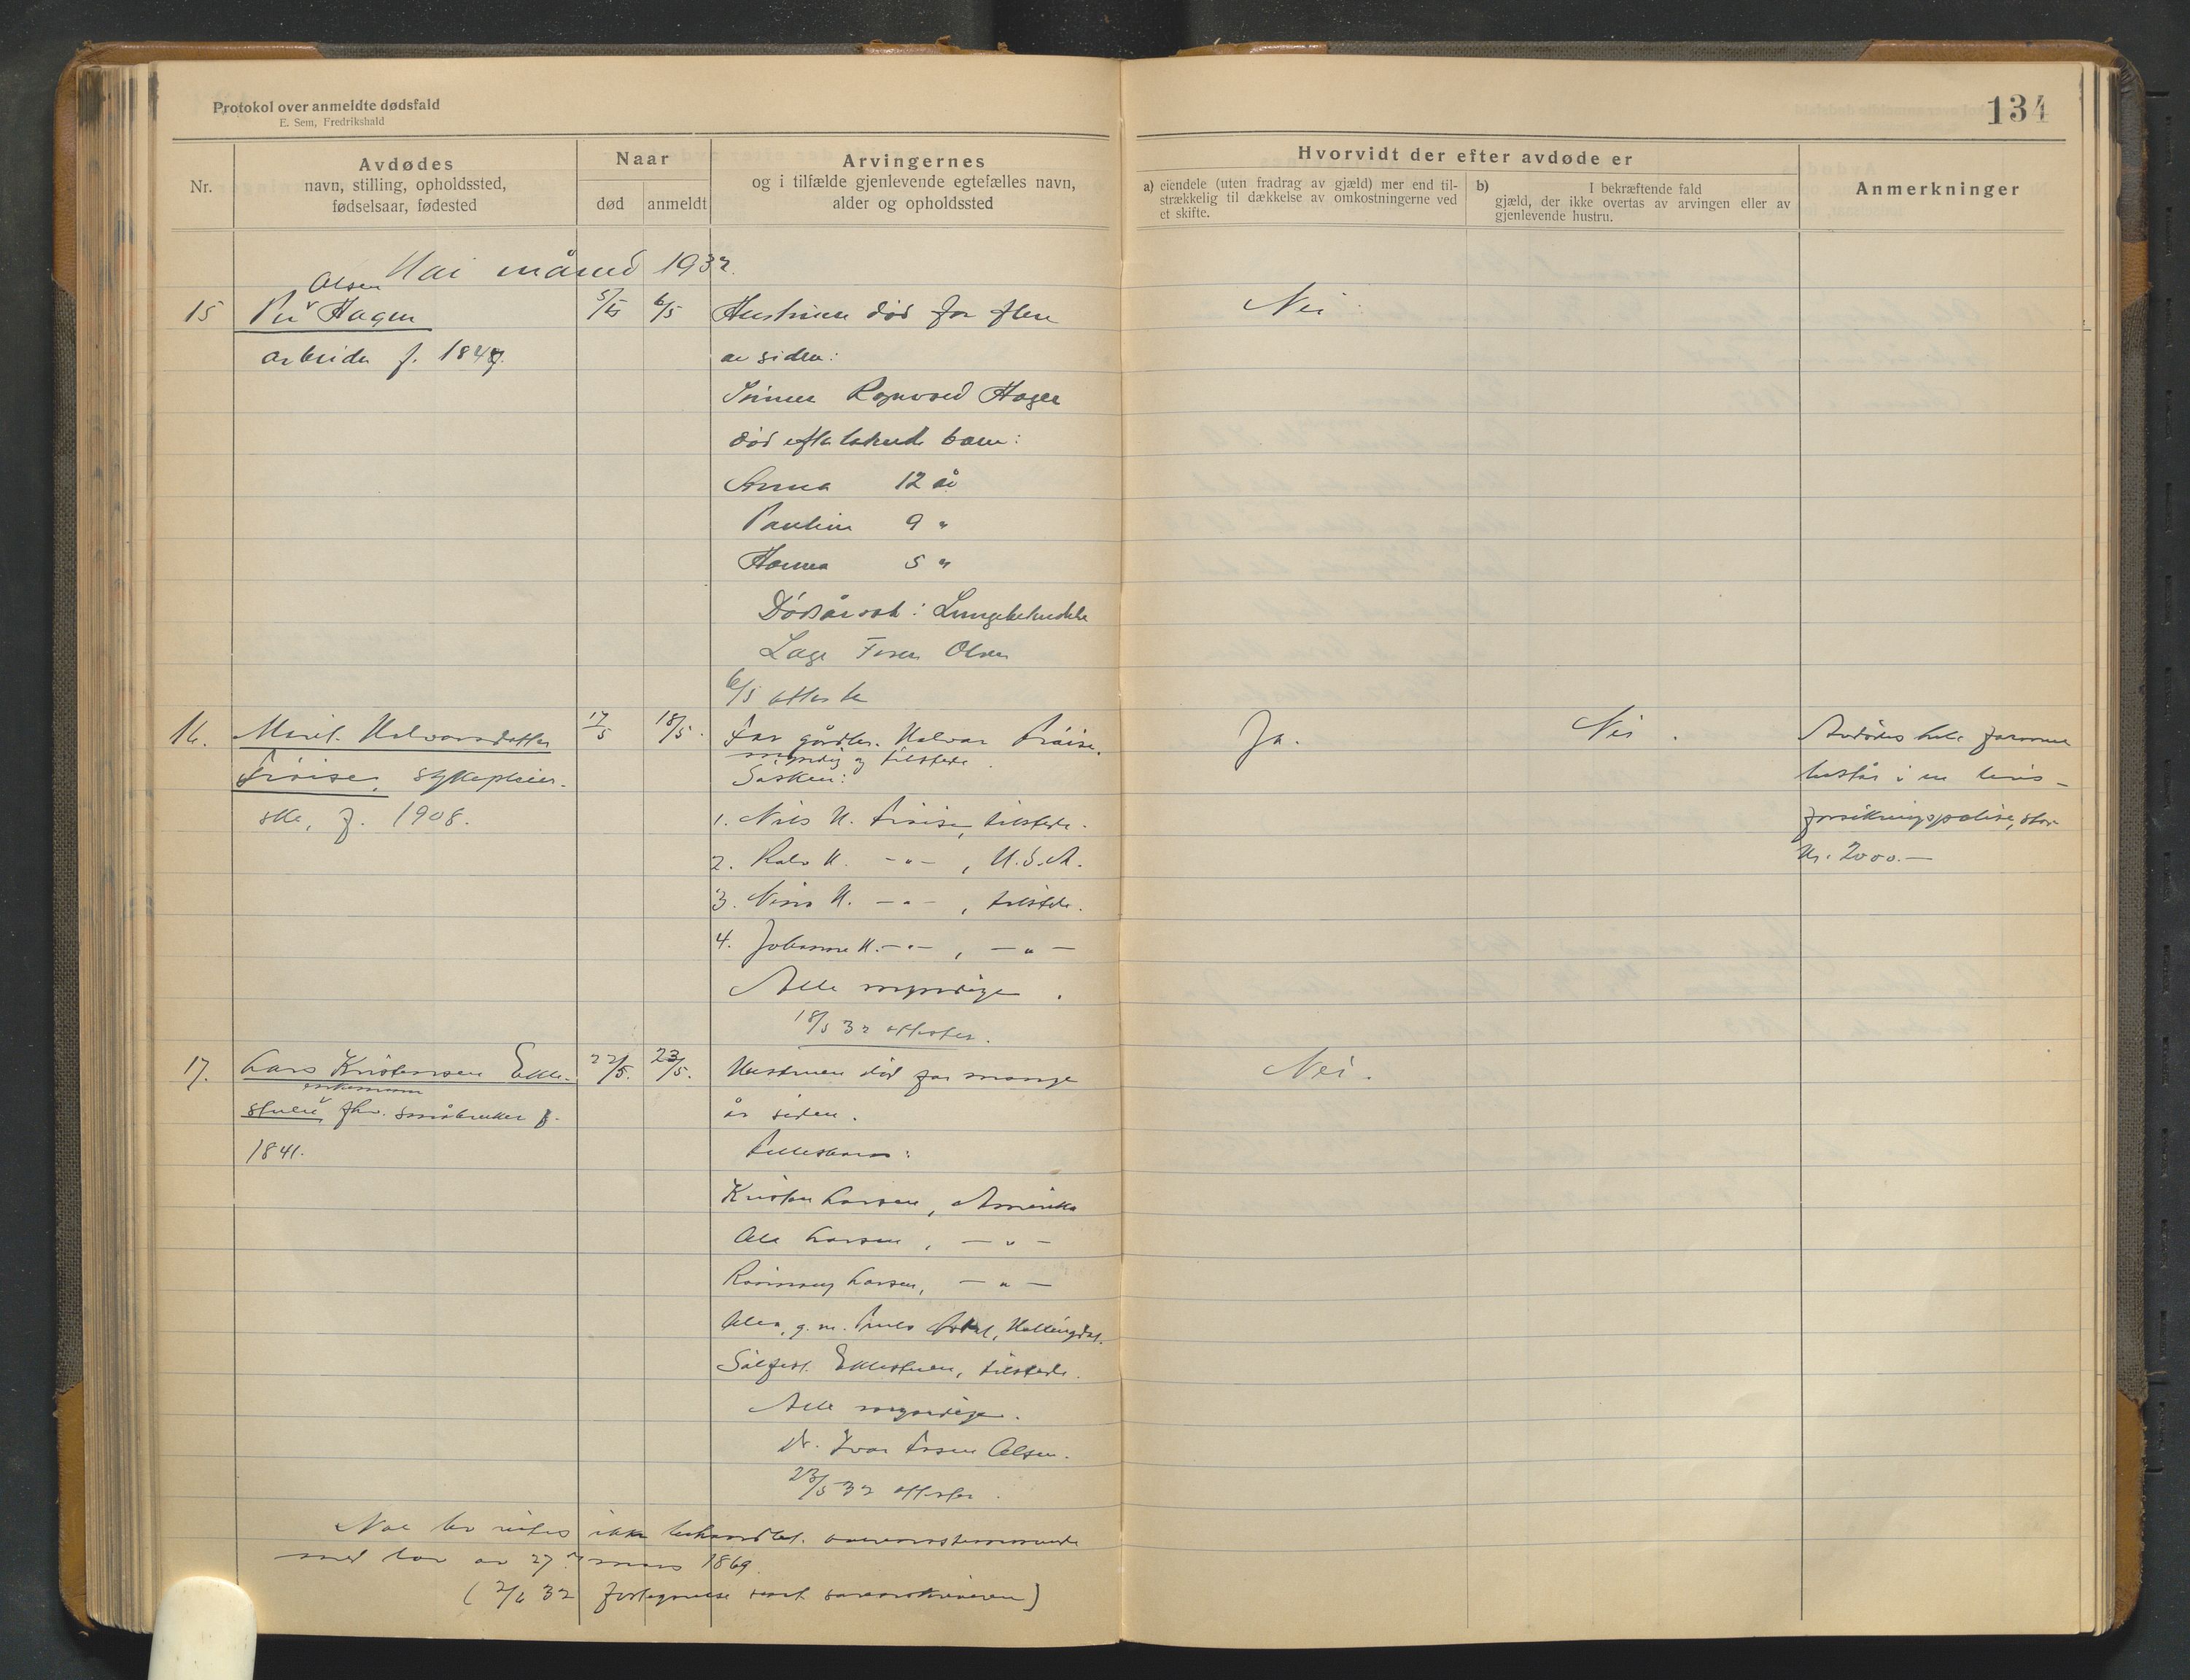 Protokol over anmeldte dødsfald
E. Sem, Fredrikshald
134
Nr.
Avdødes
navn, stilling, opholdssted,
fødselsaar, fødested
Naar
død
anmeldt
Arvingernes
og i tilfælde gjenlevende egtefælles navn,
alder og opholdssted
Hvorvidt der efter avdøde er
a) eiendele (uten fradrag av gjæld) mer end til-
strækkelig til dækkelse av omkostningerne ved
et skifte.
b) I bekræftende fald
gjæld, der ikke overtas av arvingen eller av
gjenlevende hustru.
Anmerkninger
Mai måned 1932.
Olsen
15 Per Hagen 5/5 6/5 Hustruen død for flere Nei
arbeider f. 184
år siden:
Sønnen Ragnvald Hagen
død efterlatende barn:
Anna 12 år
Pauline 9 "
Hanna 5 "
Dødsårsak: Lungebetendelse
Læge Olsen
6/5 attester
16. Marit Halvorsdatter 17/5 18/5. Far gårdbr. Halvor Ja. Nei. Avdødes hele formue
myndig og tilstede.
sykepleier- Søsken: består i en livs-
ske, f. 1908. 1. Nils H. tilstede. forsikringspolise, stor
2. H. -"-, U.S.A. kr. 2000.-
3. H. -"-, tilstede.
4. Johanne H. -"-, -"-
Alle myndige.
18/5 32 attester.
17. Lars Kristensen Ekle- 22/5. 23/5. Hustruen død for mange Nei.
enkemann
stuen, fhv. småbruker f. år siden.
1841. Fellesbarn:
Kristen Larsen, Amerika
Ole Larsen, -"-
Larsen, -"-
g. m. Hallingdal.
Eklestuen, tilstede.
Alle myndige.
dr. Ivar Olsen.
23/5 32 attester.
ikke behandlet overensstemmende
med lov av 27. mars 1869.
(2/6 32 fortegnelse sendt sorenskriveren)